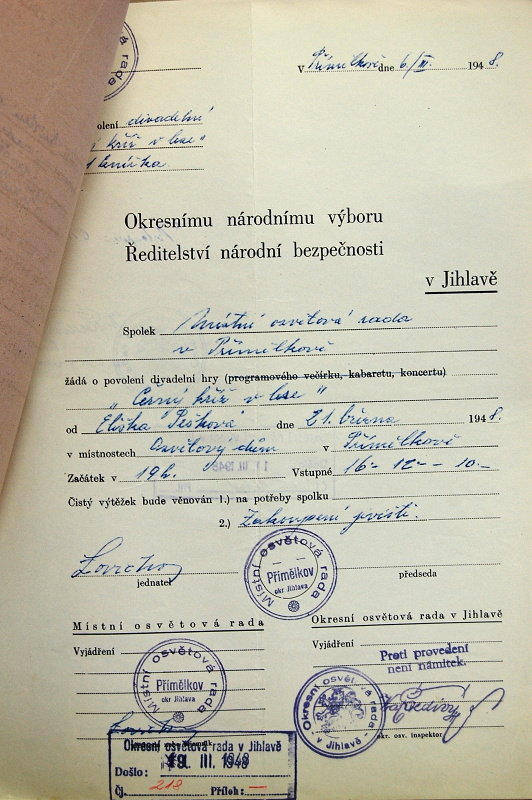 rada
V Přímělkově dne 6./III. 1948.
olení divadelní
kříž v lese"
Okresnímu národnímu výboru
Ředitelství národní bezpečnosti
v Jihlavě
Spolek Místní osvětová rada
v Přímělkově
žádá o povolení divadelní hry (programového večírku, kabaretu, koncertu)
„Černý kříž v lese"
od Eliška Pešková dne 21. března 1948
v místnostech Osvětový dům v Přímělkově
Začátek v 19 h. Vstupné 16- 12- - 10.-
Čistý výtěžek bude věnován 1.) na potřeby spolku
2.) Zakoupení jeviště.
jednatel
předseda
Místní osvětová rada
Přímělkov
okr Jihlava
Místní osvětová rada
Vyjádření
Místní osvětová rada
Přímělkov
okr Jihlava
Okresní osvětová rada v Jihlavě
Vyjádření
Proti provedení
není námitek.
Okresní osvětová rada
v Jihlavě
okr. osv. inspektor
Okresní osvětová rada v Jihlavě
Došlo: 19. III. 1948
Čj. 218 Příloh: —